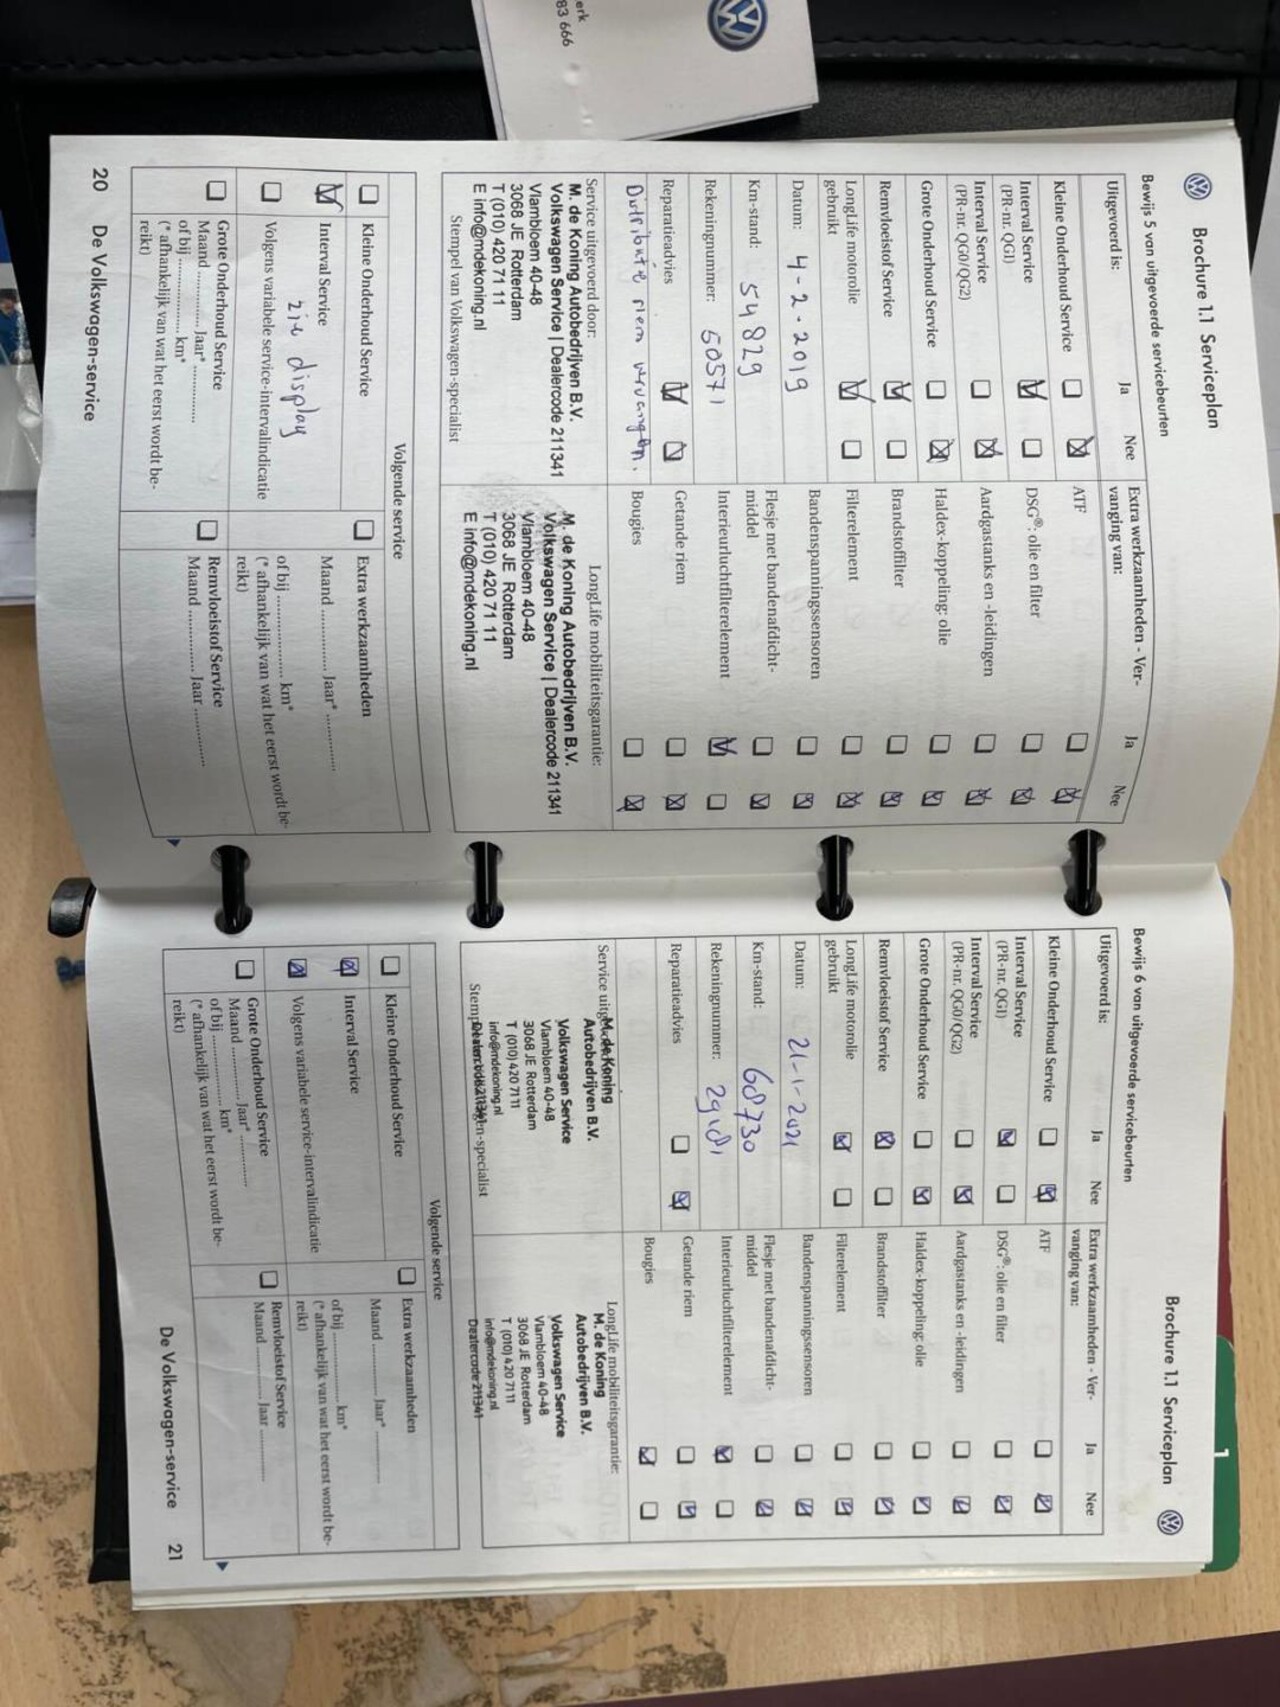 erk
83 666
Brochure 1.1 Serviceplan
Bewijs 5 van uitgevoerde servicebeurten
Uitgevoerd is:
Ja
Nee
Extra werkzaamheden - Ver-
vanging van:
Ja
Nee
Kleine Onderhoud Service
ATF
Interval Service
(PR-nr. QG1)
DSG®: olie en filter
Interval Service
(PR-nr. QG0/QG2)
Aardgastanks en -leidingen
Grote Onderhoud Service
Haldex-koppeling: olie
Remvloeistof Service
Brandstoffilter
LongLife motorolie
gebruikt
Filterelement
Datum: 4-2-2019
Bandenspanningssensoren
Km-stand: 54829
Flesje met bandenafdicht-
middel
Rekeningnummer: 50571
Interieurluchtfilterelement
Reparatieadvies
Getande riem
Distributie riem vervangen.
Bougies
Service uitgevoerd door:
M. de Koning Autobedrijven B.V.
Volkswagen Service | Dealercode 211341
Vlambloem 40-48
3068 JE Rotterdam
T (010) 420 71 11
E info@mdekoning.nl
Stempel van Volkswagen-specialist
LongLife mobiliteitsgarantie:
M. de Koning Autobedrijven B.V.
Volkswagen Service | Dealercode 211341
Vlambloem 40-48
3068 JE Rotterdam
T (010) 420 71 11
E info@mdekoning.nl
Volgende service
Kleine Onderhoud Service
Interval Service
zie display
Volgens variabele service-intervalindicatie
Grote Onderhoud Service
Maand ............ Jaar* ............
of bij ............ km*
(* afhankelijk van wat het eerst wordt be-
reikt)
Extra werkzaamheden
Maand ............ Jaar* ............
of bij ............ km*
(* afhankelijk van wat het eerst wordt be-
reikt)
Remvloeistof Service
Maand ............ Jaar ............
20 De Volkswagen-service
Brochure 1.1 Serviceplan
Bewijs 6 van uitgevoerde servicebeurten
Uitgevoerd is:
Ja
Nee
Extra werkzaamheden - Ver-
vanging van:
Ja
Nee
Kleine Onderhoud Service
ATF
Interval Service
(PR-nr. QG1)
DSG®: olie en filter
Interval Service
(PR-nr. QG0/QG2)
Aardgastanks en -leidingen
Grote Onderhoud Service
Haldex-koppeling: olie
Remvloeistof Service
Brandstoffilter
LongLife motorolie
gebruikt
Filterelement
Datum: 21-1-2021
Bandenspanningssensoren
Km-stand: 68730
Flesje met bandenafdicht-
middel
Rekeningnummer:
Interieurluchtfilterelement
Reparatieadvies
Getande riem
Bougies
M. de Koning
Autobedrijven B.V.
Volkswagen Service
Vlambloem 40-48
3068 JE Rotterdam
T (010) 420 71 11
info@mdekoning.nl
LongLife mobiliteitsgarantie:
M. de Koning
Autobedrijven B.V.
Volkswagen Service
Vlambloem 40-48
3068 JE Rotterdam
T (010) 420 71 11
info@mdekoning.nl
Dealercode 211341
Volgende service
Kleine Onderhoud Service
Interval Service
Volgens variabele service-intervalindicatie
Grote Onderhoud Service
Maand ............ Jaar* ............
of bij ............ km*
(* afhankelijk van wat het eerst wordt be-
reikt)
Extra werkzaamheden
Maand ............ Jaar* ............
of bij ............ km*
(* afhankelijk van wat het eerst wordt be-
reikt)
Remvloeistof Service
Maand ............ Jaar ............
De Volkswagen-service 21
1